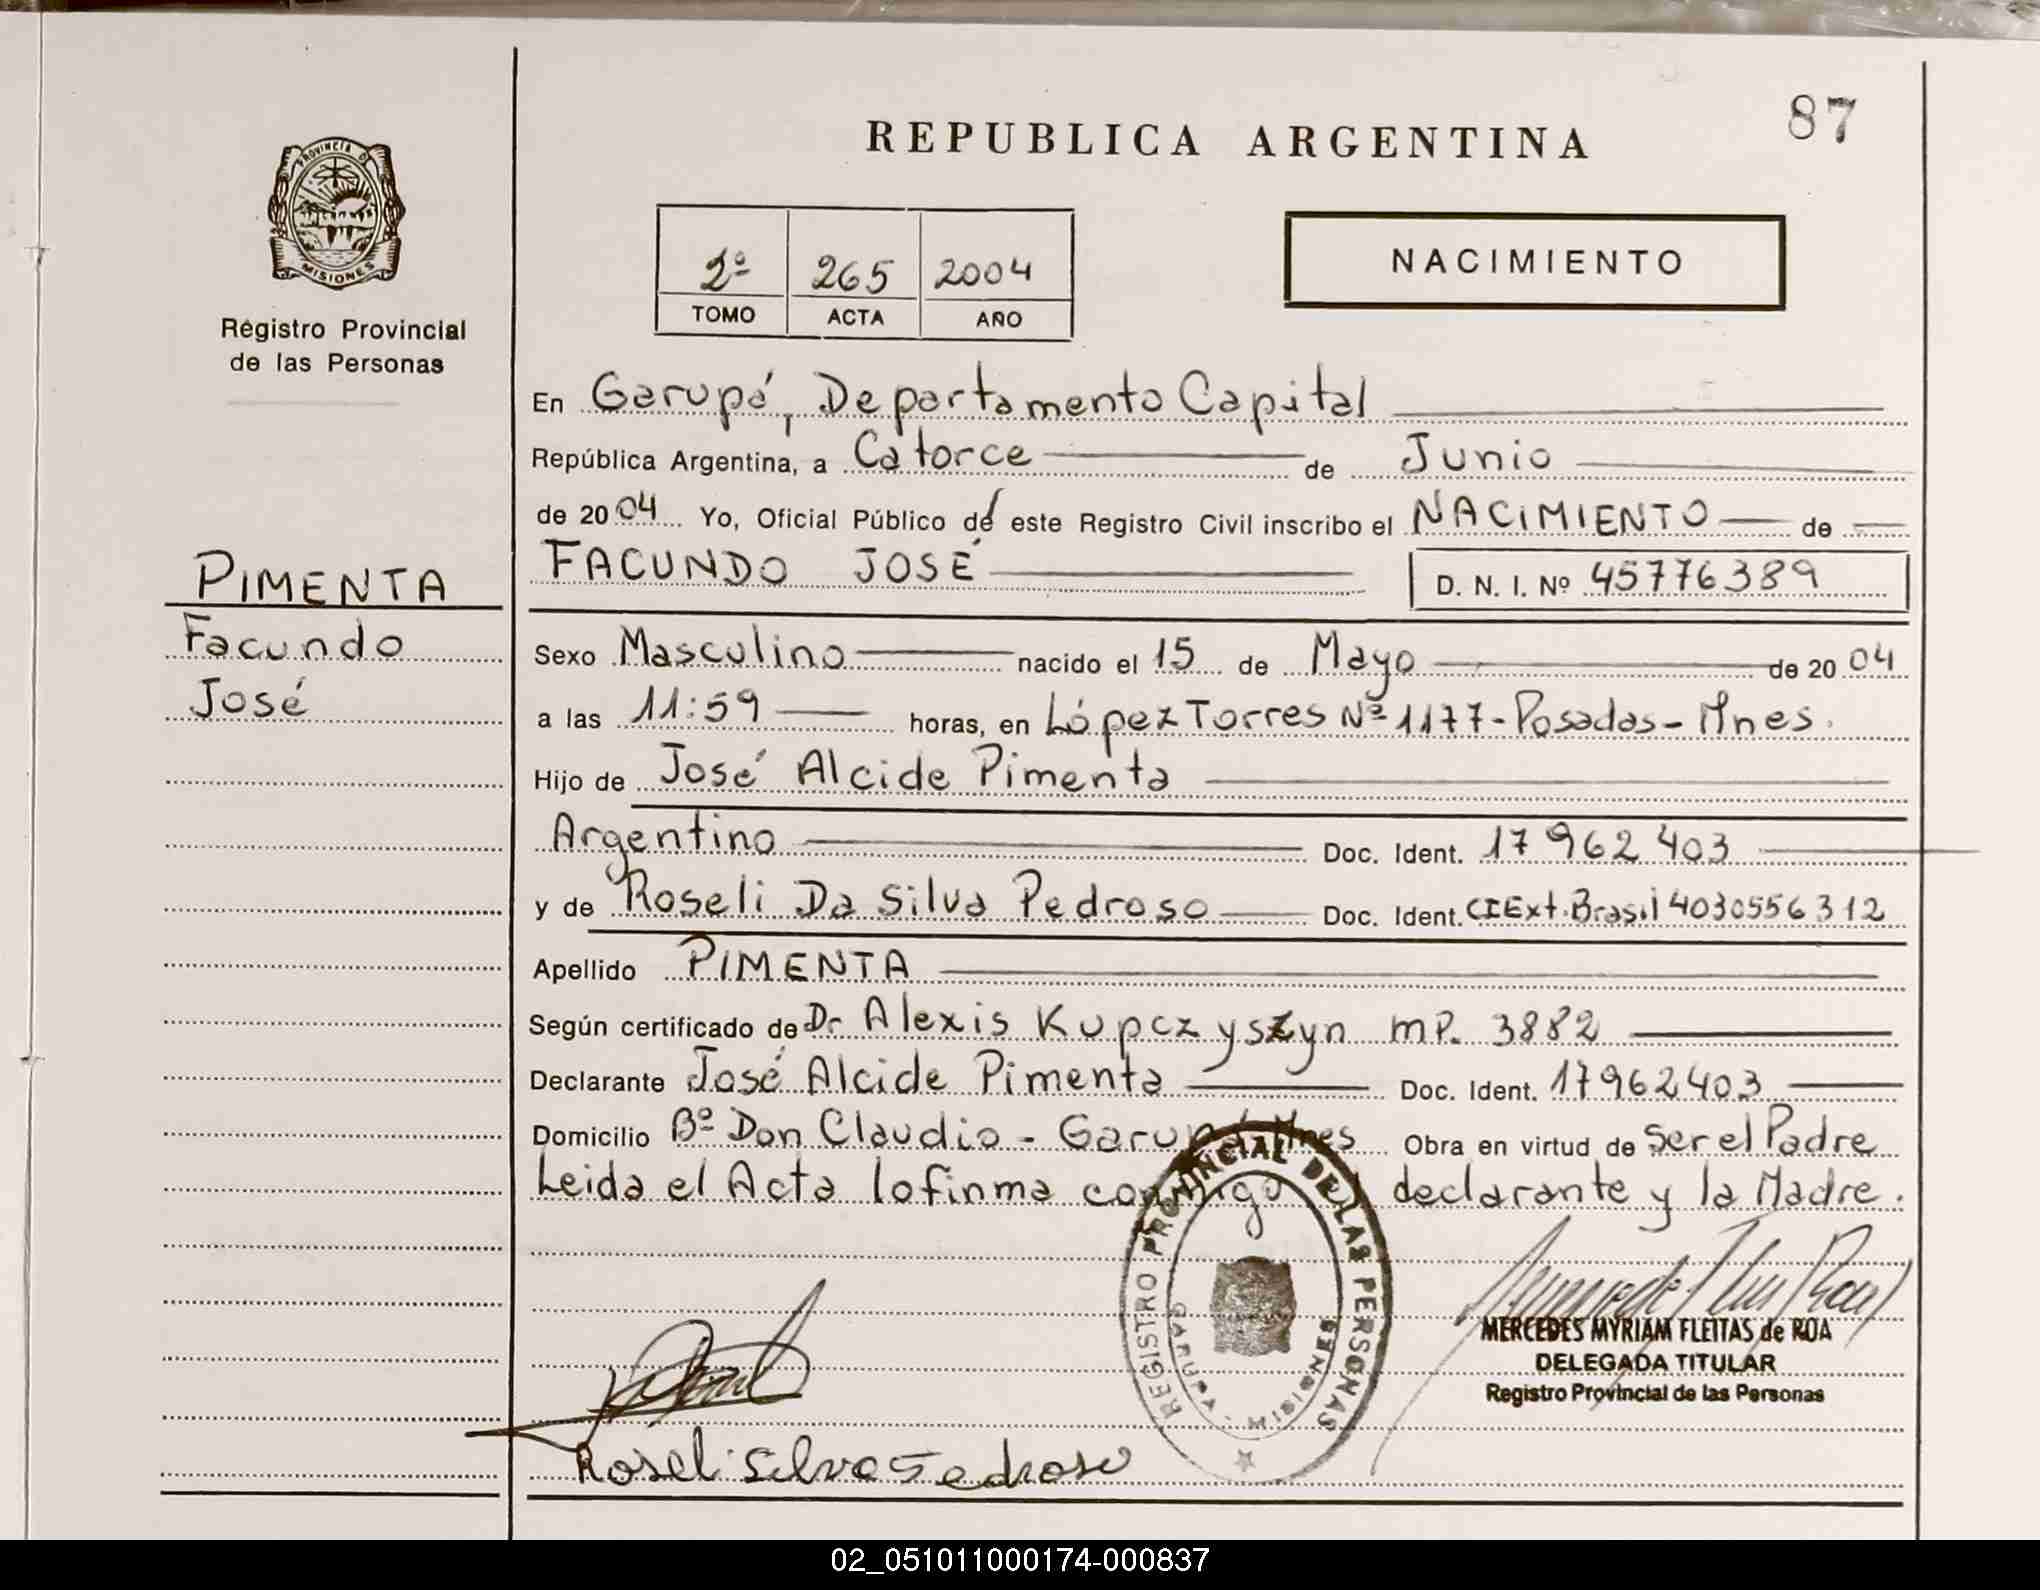 87
REPUBLICA ARGENTINA
PROVINCIA D
MISIONES
Registro Provincial
de las Personas
2º 265 2004
TOMO ACTA AÑO
NACIMIENTO
En Garupá, Departamento Capital
República Argentina, a Catorce de Junio
de 2004 Yo, Oficial Público de este Registro Civil inscribo el NACIMIENTO de
PIMENTA
Facundo
José
FACUNDO JOSÉ D. N. I. Nº 45776389
Sexo Masculino nacido el 15 de Mayo de 2004
a las 11:59 horas, en López Torres Nº 1177-Posadas-Mnes.
Hijo de José Alcide Pimenta
Argentino Doc. Ident. 17 962 403
y de Roseli Da Silva Pedroso Doc. Ident. CIExt.Brasil 4030556312
Apellido PIMENTA
Según certificado de Dr Alexis Kupczyszyn MP. 3882
Declarante José Alcide Pimenta Doc. Ident. 17962403
Domicilio Bº Don Claudio - Garupá Mnes Obra en virtud de Ser el Padre
Leida el Acta lofinma conmigo declarante y la Madre.
REGISTRO PROVINCIAL DE LAS PERSONAS
GARUPA - MISIONES
MERCEDES MYRIAM FLEITAS de ROA
DELEGADA TITULAR
Registro Provincial de las Personas
Roseli Silva Pedroso
02_051011000174-000837